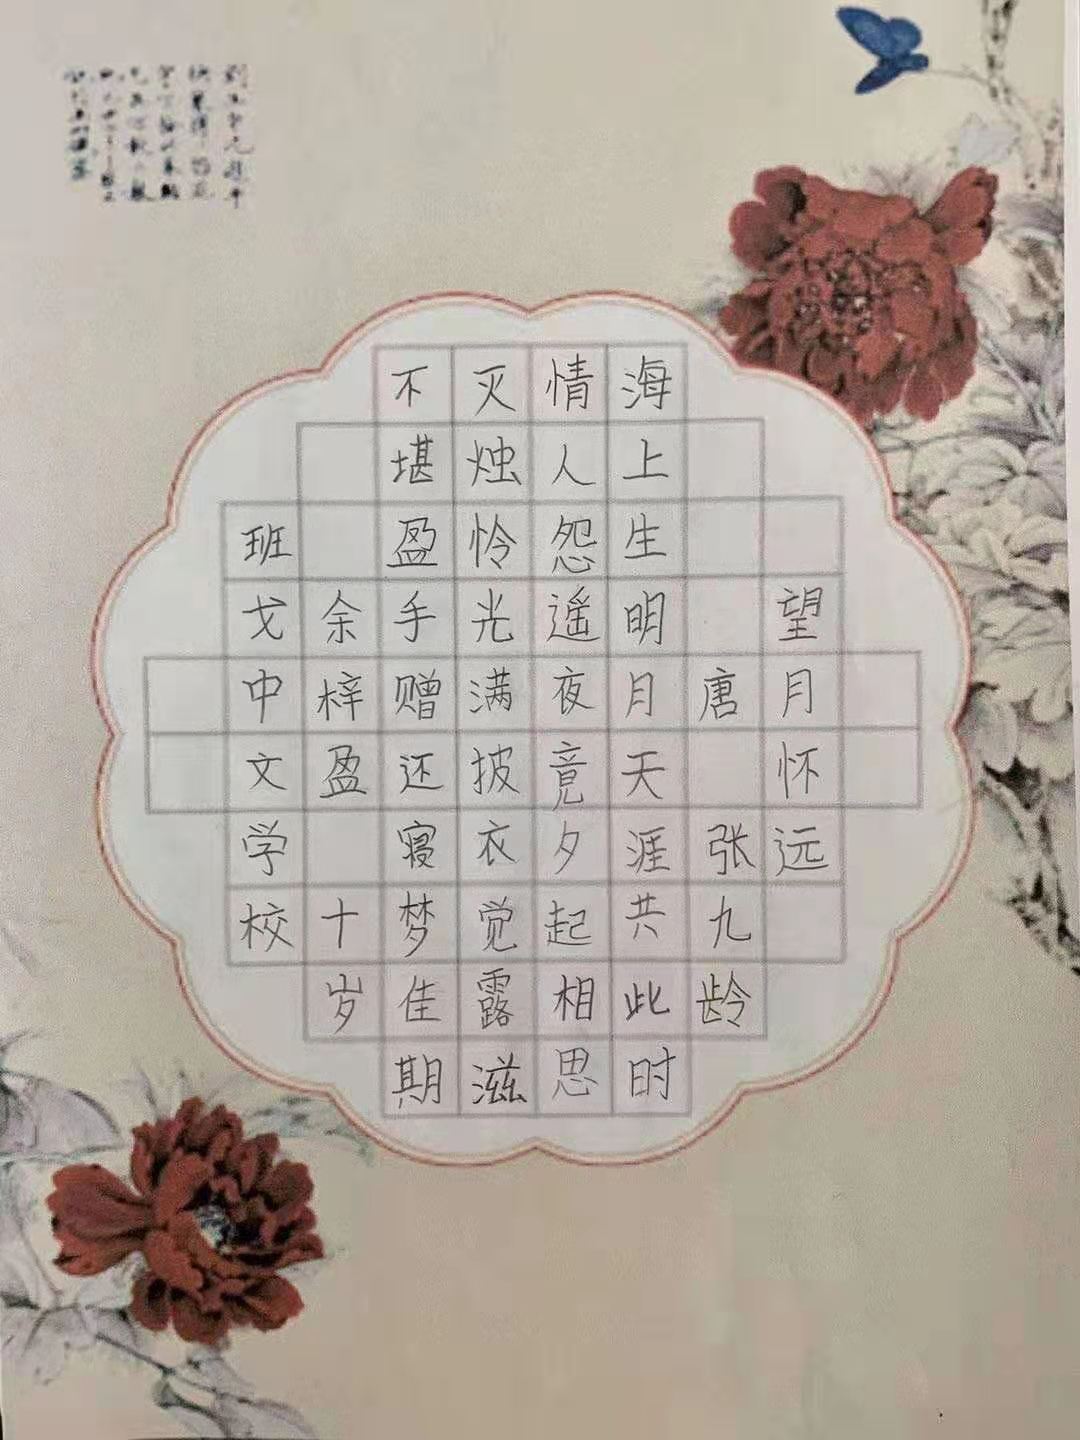 望月怀远
唐 张九龄
海上生明月天涯共此时
情人怨遥夜竟夕起相思
灭烛怜光满披衣觉露滋
不堪盈手赠还寝梦佳期
余梓盈 十岁
班戈中文学校